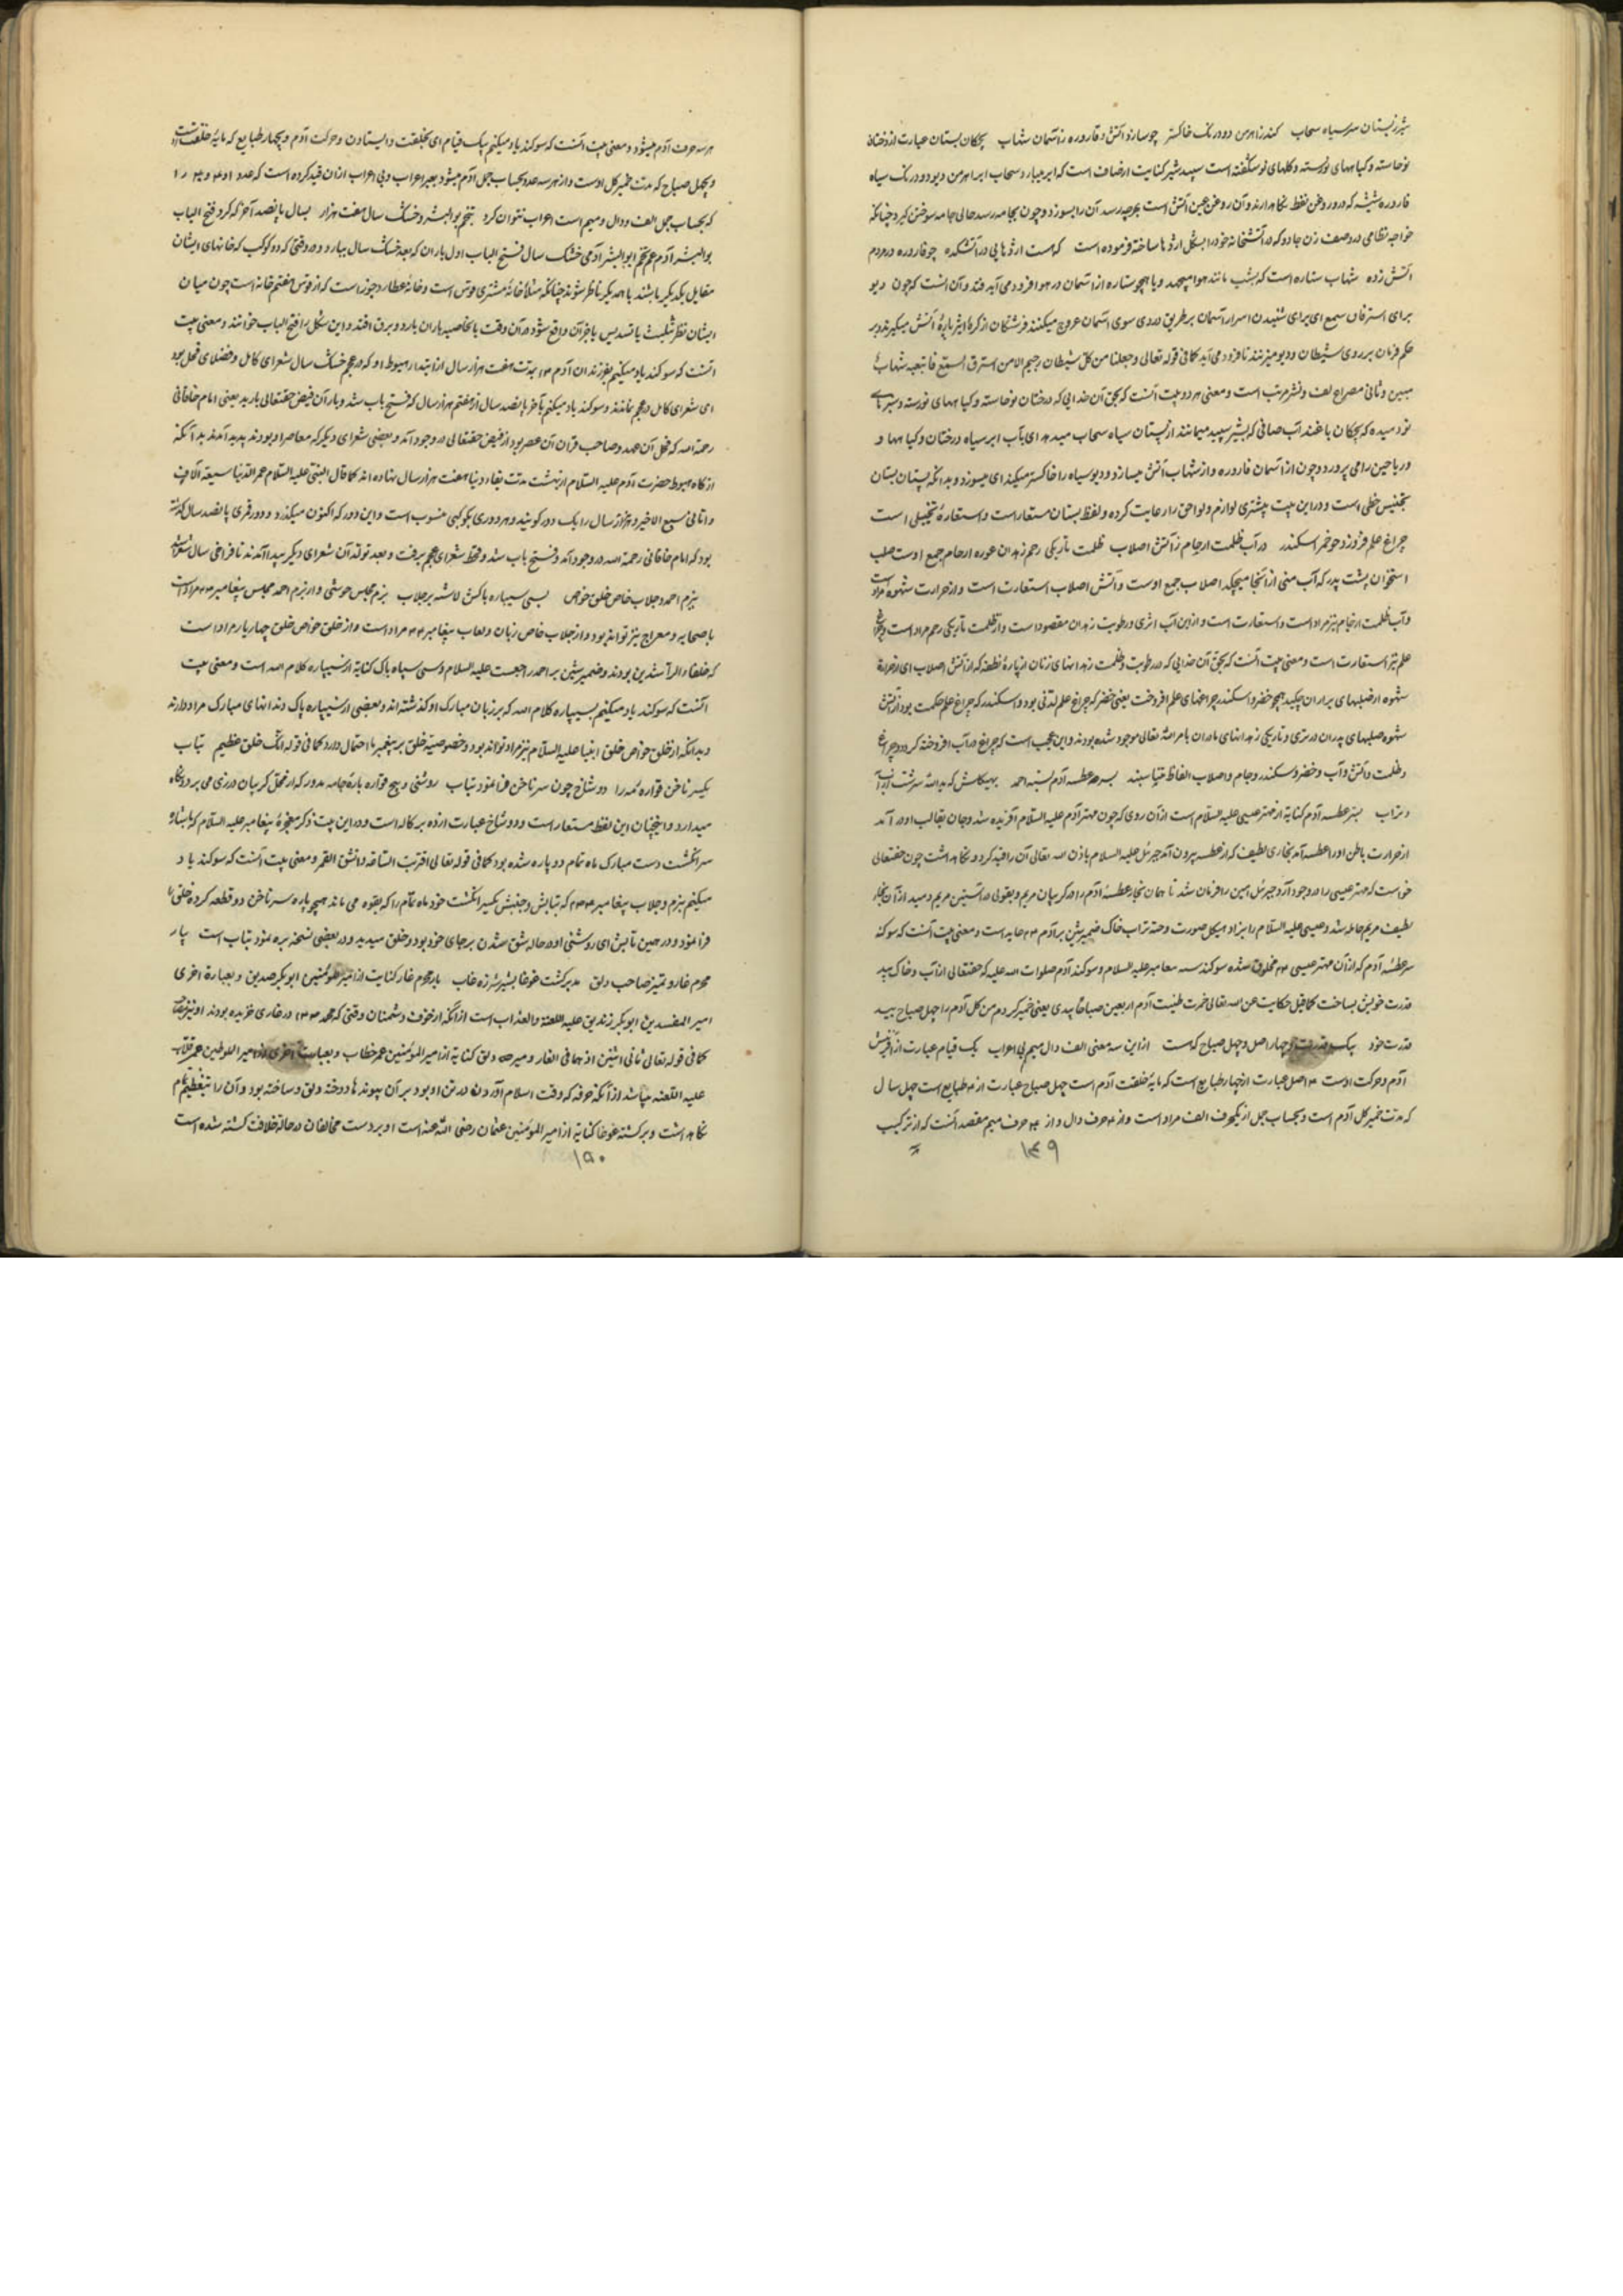 شیر زپستان سر سیاه سحاب کندز اهرمن دود رنک خاکستر چو سازد آتش و قاروره زآسمان شهاب بچکان بستان عبارت از درختان
نوخاسته و کیاههای نورسته و کلهای نوشکفته است سپید شیر کنایت از صاف است که ابر میبارد و سحاب ابر اهرمن دیو دود رنک سیاه
قاروره شیشه که درو روغن نفط نکاهدارند و آن روغن عین آتش است بهرچه رسد آن را بسوزد و چون بجامه رسد حالی جامه سوختن کیرد چنانکه
خواجه نظامی در وصف زن جادو که در آتشخانه خود را بشکل اژدها ساخته فرموده است که هست اژدهایی در آتشکده چو قاروره در مردم
آتش زده شهاب ستاره است که بشب مانند هوا میجهد و یا همچو ستاره از آسمان در هوا فرود می آید فتد و آن آنست که چون دیو
برای استراق سمع ای برای شنیدن اسرار آسمان بر طریق دزدی سوی آسمان عروج میکنند فرشتکان از کرهٔ اثیر پارهٔ آتش میکیرند و بر
حکم فرمان بر روی شیطان و دیو میزنند تا فرود می آید کما فی قوله تعالی و جعلنا من کل شیطان رجیم الا من استرق السمع فاتبعه شهاب
مبین و ثانی مصراع لف و نشر مرتب است و معنی هر دو بیت آنست که بحق آن خدایی که درختان نوخاسته و کیاههای نورسته و سبزهای
نو دمیده که بچکان باغند آب صافی که بشیر سپید میماند از پستان سیاه سحاب میدهد ای بآب ابر سیاه درختان و کیاهها و
و ریاحین را می پرورد و چون از آسمان قاروره و از شهاب آتش میسازد و دیو سیاه را خاکستر میکند ای میسوزد و بدانکه پستان بستان
تجنیس خطی است و در این بیت بیشتری لوازم و لواحق را رعایت کرده و لفظ بستان مستعار است و استعارهٔ تخییلی است
چراغ علم فروزد چو خضر اسکندر در آب ظلمت ارحام زآتش اصلاب ظلمت تاریکی رحم زهدان عوره ارحام جمع اوست صلب
استخوان پشت پدر که آب منی از آنجا میچکد اصلاب جمع اوست و آتش اصلاب استعارت است و از حرارت شهوة مراد است
و آب ظلمت ارحام نیز مراد است و استعارت است و از این آب اثری و رطوبت زهدان مقصود است و از ظلمت تاریکی رحم مراد است و چراغ
علم نیز استعارت است و معنی بیت آنست که بحق آن خدایی که در رطوبت و ظلمت زهدانهای زنان از پارهٔ نطفه که از آتش اصلاب ای از حرارة
شهوه از صلبهای پدران چکید همچو خضر و اسکندر چراغهای علم افروخت یعنی خضر که چراغ علم لدنی بود و اسکندر که چراغ علم حکمت بود از آتش
شهوه صلبهای پدران در تری و تاریکی زهدانهای مادران بامر الله تعالی موجود شده بودند و این عجب است که چراغ در آب افروخته کردد و چراغ
و ظلمت و آتش و آب و خضر و سکندر و جام و اصلاب الفاظ متناسبند بسر عطسه آدم بسنه احمد بهیکلش که ید الله سرشت از آب
و تراب سر عطسه آدم کنایة از مهتر عیسی علیه السلام است از آن روی که چون مهتر آدم علیه السلام آفریده شد و جان بقالب او در آمد
از حرارت باطن او را عطسه آمد بخاری لطیف که از عطسه بیرون آمد جبرئیل علیه السلام باذن الله تعالی آن را قید کرد و نکاهداشت چون حقتعالی
خواست که مهتر عیسی را در وجود آرد جبرئیل امین را فرمان شد تا همان بخار عطسهٔ آدم را در کریبان مریم و بقولی در آستین مریم دمید از آن بخار
لطیف مریم حامله شد و عیسی علیه السلام را بزاد هیکل صورت و جثه تراب خاک ضمیر شین بر آدم عایه است و معنی بیت آنست که سوکند
سر عطسهٔ آدم که از آن مهتر عیسی مخلوق شده سوکند علیه السلام و سوکند آدم صلوات الله علیه که حقتعالی از آب و خاک بید
قدرت خویش بساخت کما قیل حکایت عن الله تعالی خمرت طینت آدم اربعین صباحا بیدی یعنی خمیر کردم من کل آدم را چهل صباح بید
قدرت خود بیک و چهار اصل و چهل صباح که هست از این سه معنی الف دال میم بی اعراب یک قیام عبارت از آفرینش
آدم و حرکت اوست ۴ اصل عبارت از چهار طبایع است که مایهٔ خلقت آدم است چهل صباح عبارت از ۴ طبایع است چهل سال
که مدت خمیر کل آدم است و بحساب جمل از یکحرف الف مراد است و از ۴ حرف دال و از ۴۰ حرف میم مقصد آنست که از ترکیب
۱۴۹
هر سه حرف آدم میشود و معنی بیت آنست که سوکند یاد میکنم بیک قیام ای بخلقت و ایستادن و حرکت آدم و بچهار طبایع که مایهٔ خلقت است
و بچهل صباح که مدت خمیر کل اوست و از هر سه عدد بحساب جمل آدم میشود بغیر اعراب و بی اعراب از آن قید کرده است که عدد ۱ و ۴ و ۴۰ را
که بحساب جمل الف و دال و میم است اعراب نتوان کرد بتخم بوالبشر و خشک سال هفت هزار بسال پانصد آخر که کرد فتح الباب
بوالبشر آدم عم تخم ابو البشر آدمی خشک سال فتح الباب اول باران که بعد خشک سال ببارد و در وقتی که دو کوکب که خانهای ایشان
مقابل یکدیکر باشند با همدیکر ناظر شوند چنانکه مثلا خانهٔ مشتری قوس است و خانهٔ عطارد جوزا ست که از قوس هفتم خانه است چون میان
ایشان نظر تثلیث یا تسدیس یا جز آن واقع شود در آن وقت بالخاصیه باران بارد و برق افتد و این شکل را فتح الباب خوانند و معنی بیت
آنست که سوکند یاد میکنم بفرزندان آدم بمدت هفت هزار سال از ابتداء هبوط او که در عجم خشک سال شعرای کامل و فضلای فحل بود
ای شعرای کامل در عجم نماندند و سوکند یاد میکنم بآخر پانصد سال از هفتم هزار سال که فتح باب شد و باران فیض حقتعالی بارید یعنی امام خاقانی
رحمة الله که فحل آن عهد و صاحب قران آن عصر بود از فیض حقتعالی در وجود آمد و بعضی شعرای دیکر که معاصر او بودند پدید آمدند بدانکه
از کاه هبوط حضرت آدم علیه السلام از بهشت مدت بقاء دنیا هفت هزار سال نهاده اند کما قال النبی علیه السلام عمر الدنیا سبعة آلاف
و انا فی سبع الاخیر و هزار سال را یک دور کویند و هر دوری بکوکبی منسوب است و این دور که اکنون میکذرد و دور قمری پانصد سال کذشته
بود که امام خاقانی رحمة الله در وجود آمد و فتح باب شد و قحط شعرای عجم برفت و بعد تولد آن شعرای دیکر پیدا آمدند تا فراخی سال شعرا شد
ببزم احمد و جلاب خاص خلق خواص بسی سیپاره باکش لاشه بر جلاب بزم مجلس خوشی و از بزم احمد مجلس پیغامبر مراد است
باصحابه و معراج نیز تواند بود و از جلاب خاص زبان و لعاب پیغامبر مراد است و از خلق خواص خلق چهار یار مراد است
که خلفاء الراشدین بودند و ضمیر شین بر احمد راجعست علیه السلام و سی سپاه پاک کنایة از سیپاره کلام الله است و معنی بیت
آنست که سوکند یاد میکنم بسیپاره کلام الله که بر زبان مبارک او کذشته اند و بعضی از سیپاره پاک دندانهای مبارک مراد دارند
و بدانکه از خلق خواص خلق انبیا علیه السلام نیز مراد تواند بود و خصوصیة خلق بر پیغمبر ما احتمال دارد کما فی قوله انک لعلی خلق عظیم بتاب
یکسر ناخن قواره مه را دو شاخ چون سر ناخن فرا نمود بتاب روشنی و پیچ قواره پارهٔ جامه مدور که از محل کریبان درزی می برد و نکاه
میدارد و اینچنان این لفظ مستعار است و دو شاخ عبارت از ده پرکاله است و در این بیت ذکر معجزهٔ پیغامبر علیه السلام که باشارهٔ
سر انکشت دست مبارک ماه تمام دو پاره شده بود کما فی قوله تعالی اقتربت الساعة و انشق القمر و معنی بیت آنست که سوکند یاد
میکنم ببزم و جلاب پیغامبر که بتابش و جنبش یکسر انکشت خود ماه تمام را که بقواره می ماند همچو پاره سر ناخن دو قطعه کرده بخلق
فرا نمود و در همین تابش ای روشنی او در حاله شق شدن بر جای خود بود و خلق میدید و در بعضی نسخه سره نمود بتاب است بیار
محرم غار و بمیر صاحب دلق به پیر کشت غوغا بشیر شرزه غاب یار محرم غار کنایت از امیر المؤمنین ابوبکر صدیق و بعبارة اخری
امیر المفسدین ابوبکر زندیق علیه اللعنة و العذاب است از آنکه از خوف دشمنان وقتی که محمد در غاری خزیده بودند او نیز
کما فی قوله تعالی ثانی اثنین اذ هما فی الغار و میر صاحب دلق کنایة از امیر المؤمنین عمر خطاب و بعبارت اخری امیر اللوطین عمر
علیه اللعنه میباشد از آنکه خرقه که وقت اسلام آوردن در تن او بود بر آن پیوندها دوخته دلق و ساخته بود و آن را بتعظیم تمام
نکاهداشت و پیر کشته غوغا کنایة از امیر المؤمنین عثمان رضی الله عنه است او بر دست مخالفان در حالة خلافت کشته شده است
۱۵۰